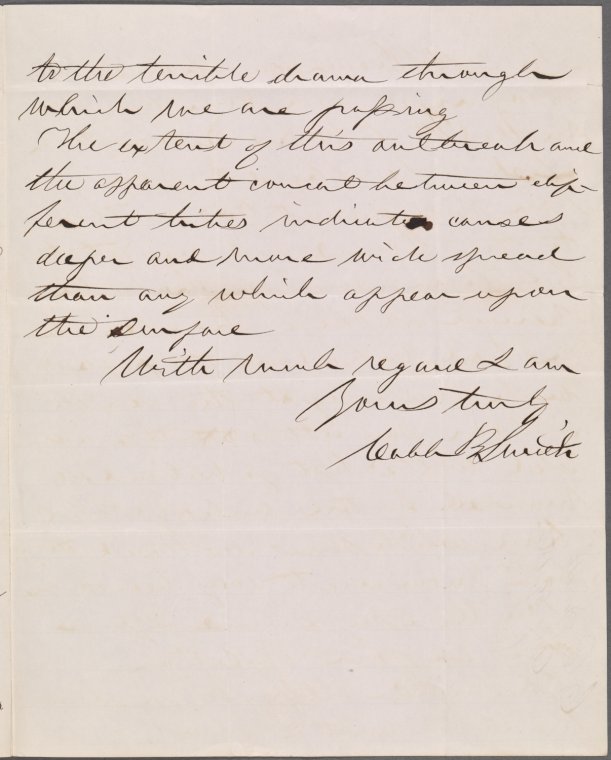 to the terrible drama through
which we are passing
The extent of this outbreak and
the apparent concert between dif-
ferent tribes indicates causes
deeper and more wide spread
than any which appear upon
the surface
With much regard I am
Yours truly
Caleb B Smith